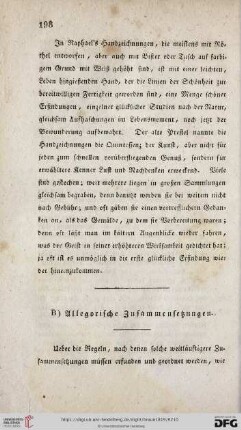 198
In Raphael's Handzeichnungen, die meistens mit Rö-
thel entworfen, aber auch mit Bister oder Tusch auf farbi-
gem Grund mit Weiß gehöht sind, ist mit einer leichten,
Leben hingießenden Hand, der die Linien der Schönheit zur
bereitwilligen Fertigkeit geworden sind, eine Menge schöner
Erfindungen, einzelner glücklicher Studien nach der Natur,
gleichsam Aufhaschungen im Lebensmoment, noch jetzt der
Bewunderung aufbewahrt. Der alte Prestel nannte die
Handzeichnungen die Quintessenz der Kunst, aber nicht für
jeden zum schnellen vorüberfliegenden Genuß, sondern für
erwähltere Kenner Lust und Nachdenken erweckend. Viele
sind gestochen; weit mehrere liegen in großen Sammlungen
gleichsam begraben, denn benutzt werden sie bei weitem nicht
nach Gebühr; und oft gaben sie einen vortrefflichern Gedan-
ken an, als das Gemälde, zu dem sie Vorbereitung waren;
denn oft läßt man im kältern Augenblicke wieder fahren,
was der Geist in seiner erhöhteren Wirksamkeit gedichtet hat;
ja oft ist es unmöglich in die erste glückliche Erfindung wie-
der hineinzukommen.
B) Allegorische Zusammensetzungen.
Ueber die Regeln, nach denen solche weitläuftigere Zu-
sammensetzungen müssen erfunden und geordnet werden, wir